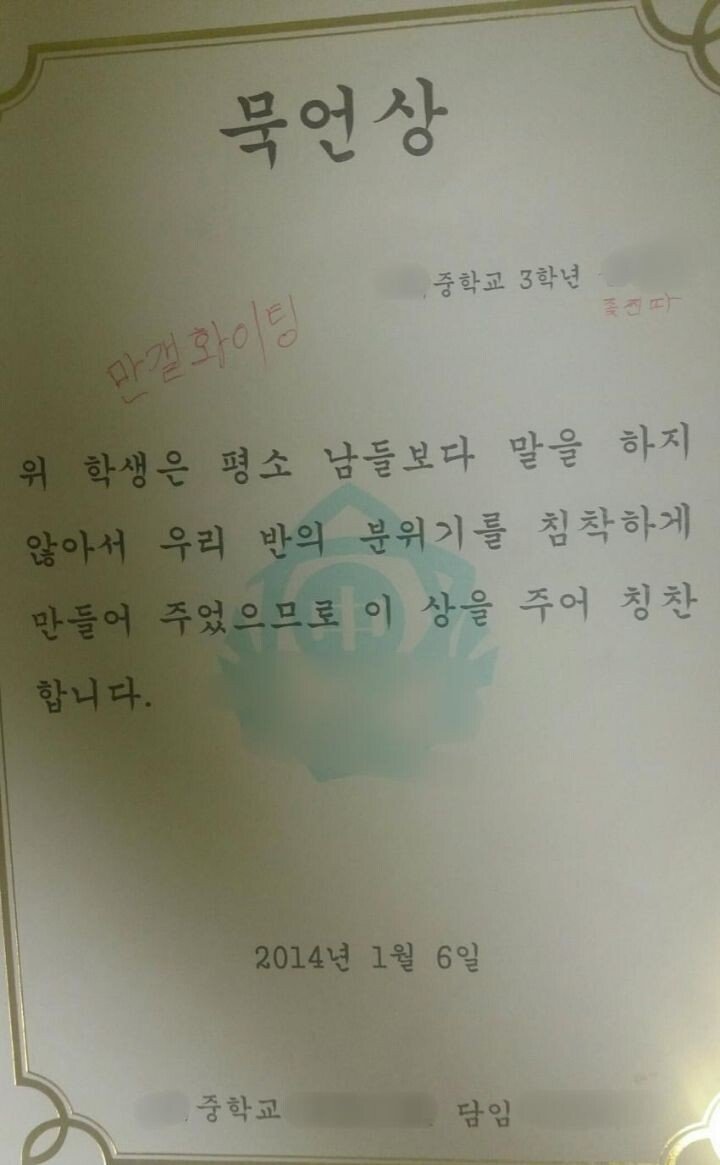 묵언상
중학교 3학년
좆찐따
만갤화이팅
위 학생은 평소 남들보다 말을 하지
않아서 우리 반의 분위기를 침착하게
만들어 주었으므로 이 상을 주어 칭찬
합니다.
中
2014년 1월 6일
중학교 담임